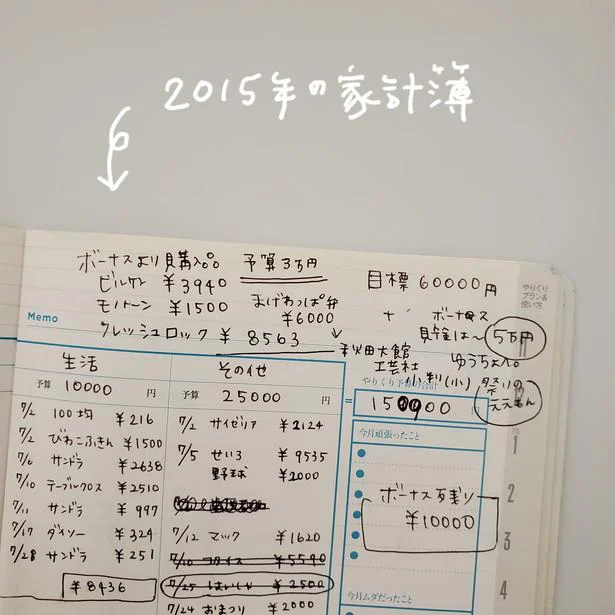 2015年の家計簿
ボーナスより購入品 予算3万円
ビルケン ¥3940
モノトーン ¥1500
まげわっぱ弁
¥6000
クレッシュロック ¥8563
目標 60000円
+ ボーナス
貯金は〜 5万円
ゆうちょへ。
秋田大館
工芸社
小判(小)
祭りの
ええもん
やりくり
プラン&
使い方
Memo
生活
予算 10000 円
7/2 100均 ¥216
7/2 びわこふきん ¥1500
7/6 サンドラ ¥2638
7/10 テーブルクロス ¥2510
7/11 サンドラ ¥997
7/17 ダイソー ¥324
7/28 サンドラ ¥251
¥8436
その他
予算 25000 円
7/2 サイゼリア ¥2124
7/5 せいろ ¥9535
野球 ¥2000
7/12 マック ¥1620
¥5590
7/25 ¥2500
7/24 おまつり ¥2000
やりくり予算の合計
= 円
今月頑張ったこと
ボーナス残り
¥10000
今月ムダだったこと
1
2
3
4